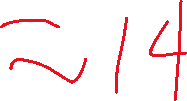 ≈14